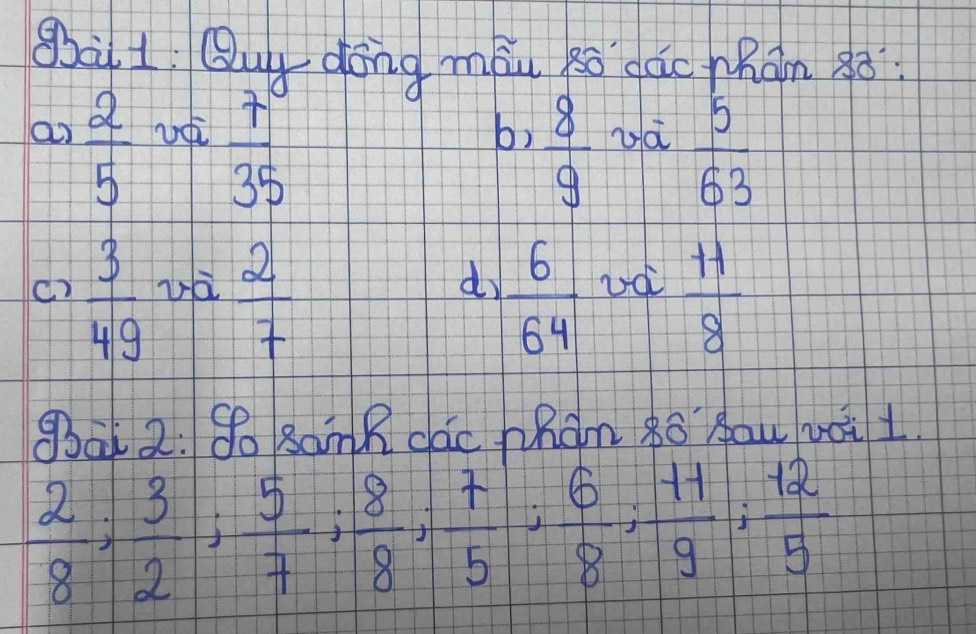 Bài 1: Quy đồng mẫu số các phân số:
a) 2/5 và 7/35 b) 8/9 và 5/63
c) 3/49 và 2/7 d) 6/64 và 11/8
Bài 2: So sánh các phân số sau với 1.
2/8; 3/2; 5/7; 8/8; 7/5; 6/8; 11/9; 12/5